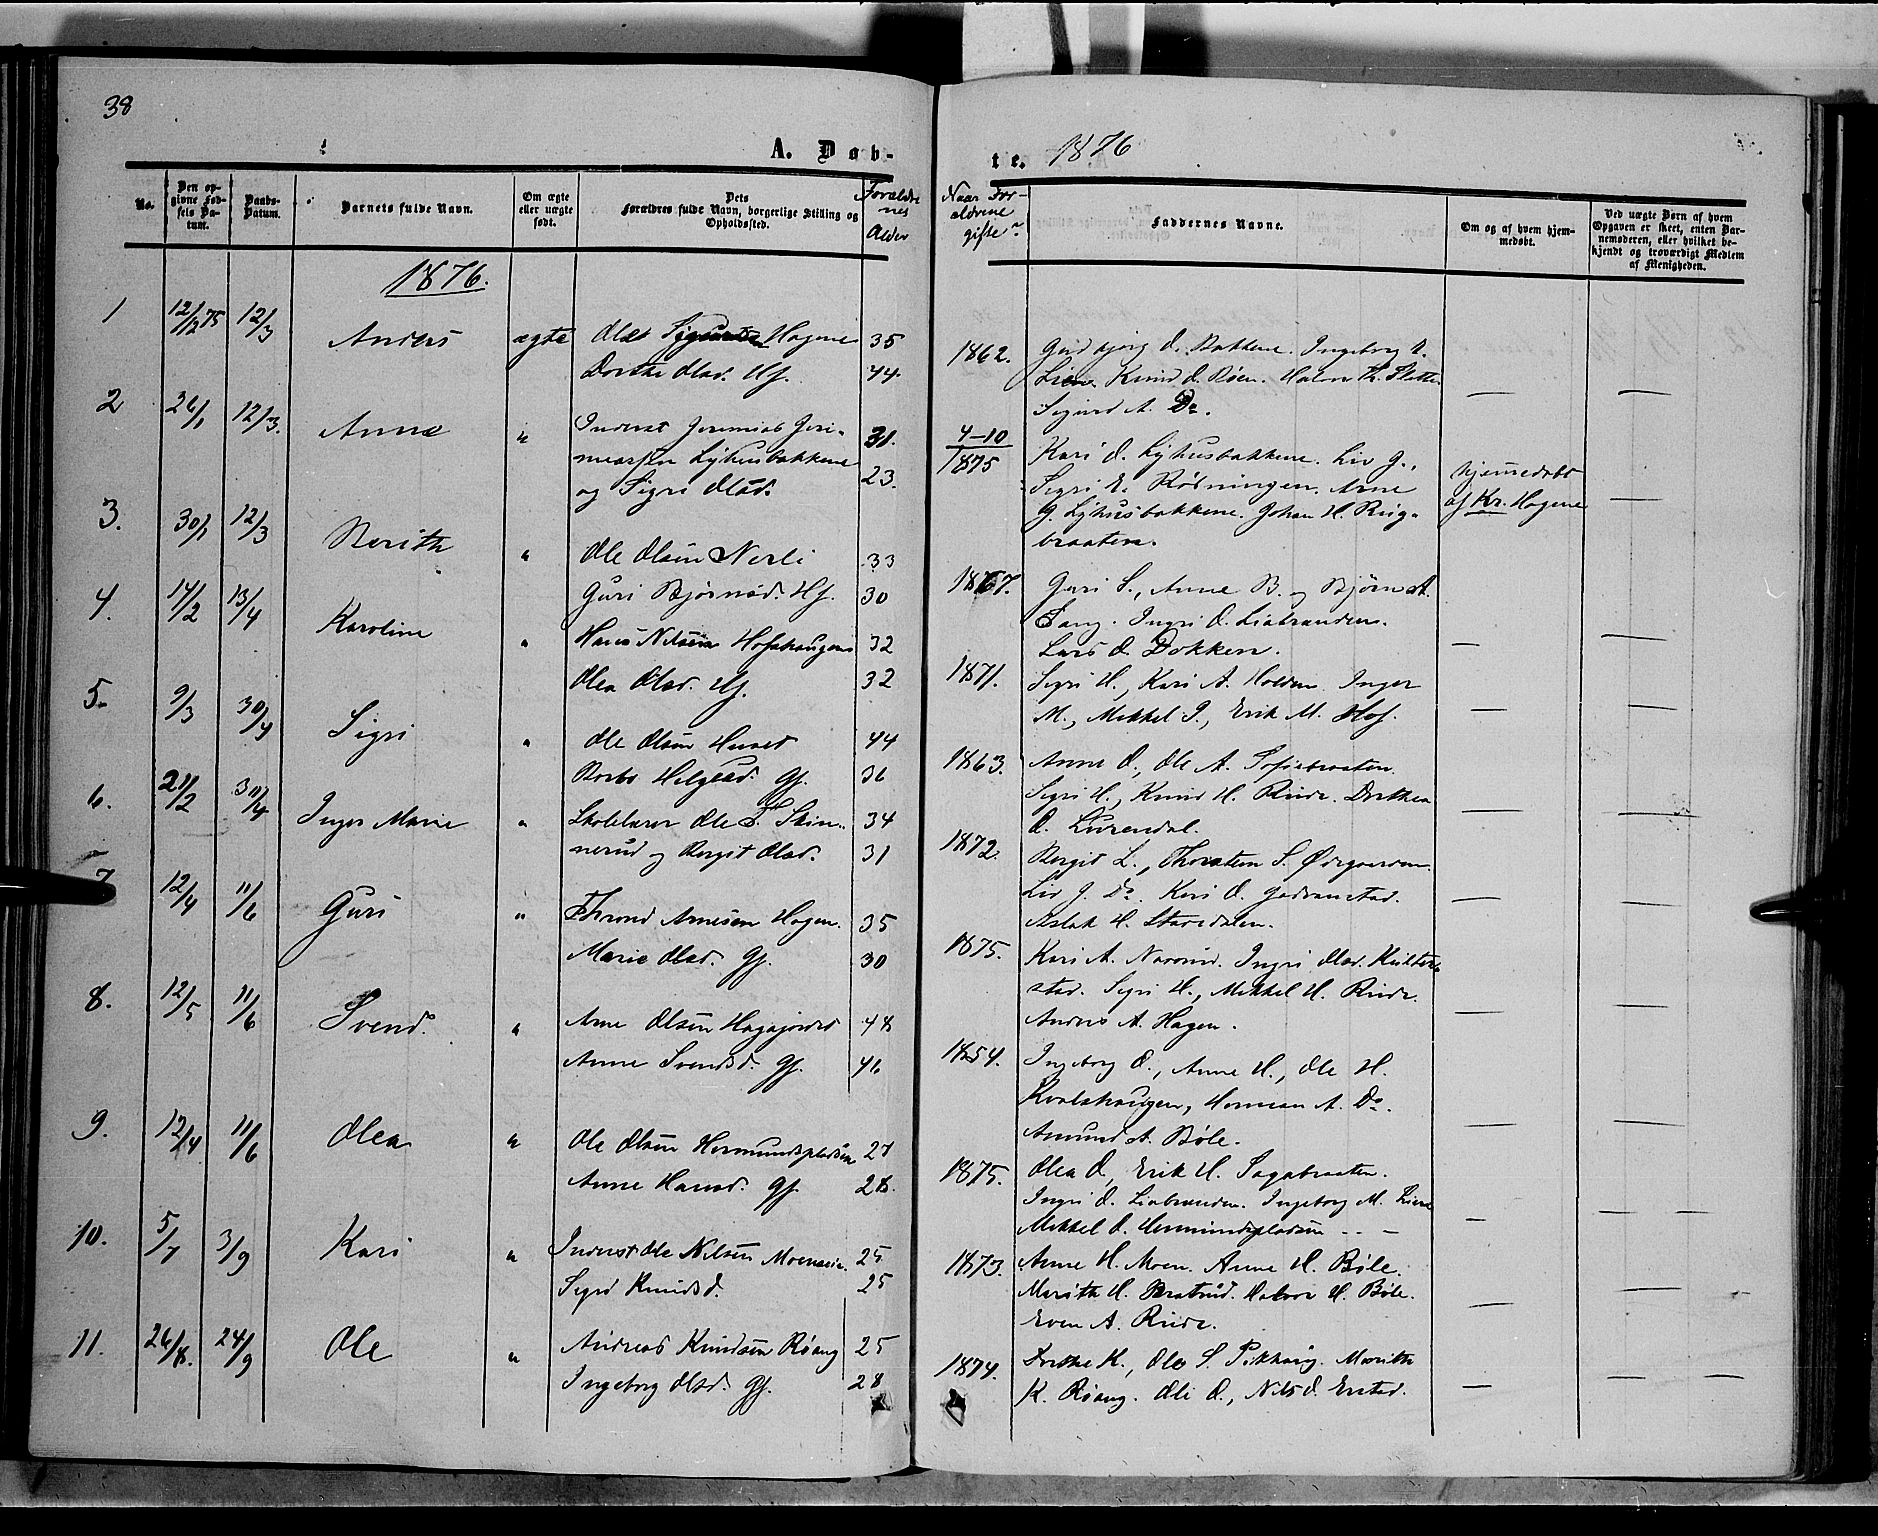 38
A. Døb-
te. 1876
No.
Den opgivne Fødsels Datum.
Daabs-Datum.
Barnets fulde Navn.
Om ægte eller uægte født.
Dets Forældres fulde Navn, borgerlige Stilling og Opholdssted.
Forældrenes Alder
Naar Forældrene gifte
Faddernes Navne.
Om og af hvem hjemmedøbt.
Ved uægte Børn af hvem Opgaven er skeet, enten Barnemoderen, eller hvilket bekjendt og troværdigt Medlem af Menigheden.
1876.
1 12/12 75 12/3 Anders ægte Ole Hagene 35
Dorthe Olsd. Hf. 44.
1862. Gudbjørg O. Bakkene. Ingeborg
Liene Knud O. Røen. Halvor Th.
Sigurd A. Do.
2 26/1 12/3. Anne " Inderst Jeremias Jere-
miassen Lyhusbakkene 31.
og Sigri Olsd. 23.
4-10
1875 Kari O. Lyhusbakkene. Liv J.,
Sigri E. Arne
J. Lyhusbakkene. Johan H. Ring-
braaten.
hjemmedøbt
af Kr. Hagene
3. 30/1 12/3 Berith " Ole Olsen Nerli 33
Guri Bjørnsd. Hf. 30
1867. Guri S., Anne B. og Bjørn A.
Sang. Ingri O. Liabrænden.
Lars O. Dokken.
4. 14/2 13/4 Karoline " Hans Nilsen Hofshaugen 32
Olea Olsd. Hf. 32
1871. Sigri H., Kari A. Holden Inger
M., Mikkel P., Erik M. Hof.
5. 9/3 30/4 Sigri " Ole Olsen 44
Barbo Helgesd. Gf. 36
1863. Anne O., Ole A. Sofiebraaten.
Sigri H., Knud H. Rinde. Dorthea
O. Lurendal.
6. 21/2 30/4 Inger Marie " Skolelærer Ole T. Skin-
nerud og Bergit Olsd. 34
31
1872. Bergit L., Thorstein S. Ødegaarden.
Liv J. Do. Kari O. Gudvanstad.
Aslak H. Staredalen.
7 12/4 11/6 Guri " Thrond Arnesen Hagen. 35
Marie Olsd. Gf. 30
1875. Kari A. Ingri Olsd.
stad. Sigri H., Mikkel H. Rinde.
Anders A. Hagen.
8. 12/5 11/6 Svend. " Arne Olsen Hagajordet 48
Anne Svendsd. Gf. 46
1854. Ingeborg O., Anne H., Ole H.
Kvalshaugen, Herman A. Do.
Amund A. Bøle.
9. 12/4 11/6 Olea " Ole Olsen Hermundspladsen 27
Anne Hansd. Gf. 28.
1875. Olea O., Erik H. Sagabraaten.
Ingri O. Liabrænden. Ingeborg M. Liene
Mikkel O. Hermundspladsen
10. 5/7 3/9 Kari " Inderst Ole Nilsen Moenseie. 25
Sigrd Knudsd. 25
1873. Anne H. Moen. Anne H. Bøle.
Marith H. Halvor H. Bøle.
Even A. Rinde.
11. 26/8. 24/9 Ole " Andreas Knudsen Røang 25
Ingeborg Olsd. Gf. 28
1874. Dorthe K., Ole S. Marith
K. Røang. Ole O., Nils O. Erstad.